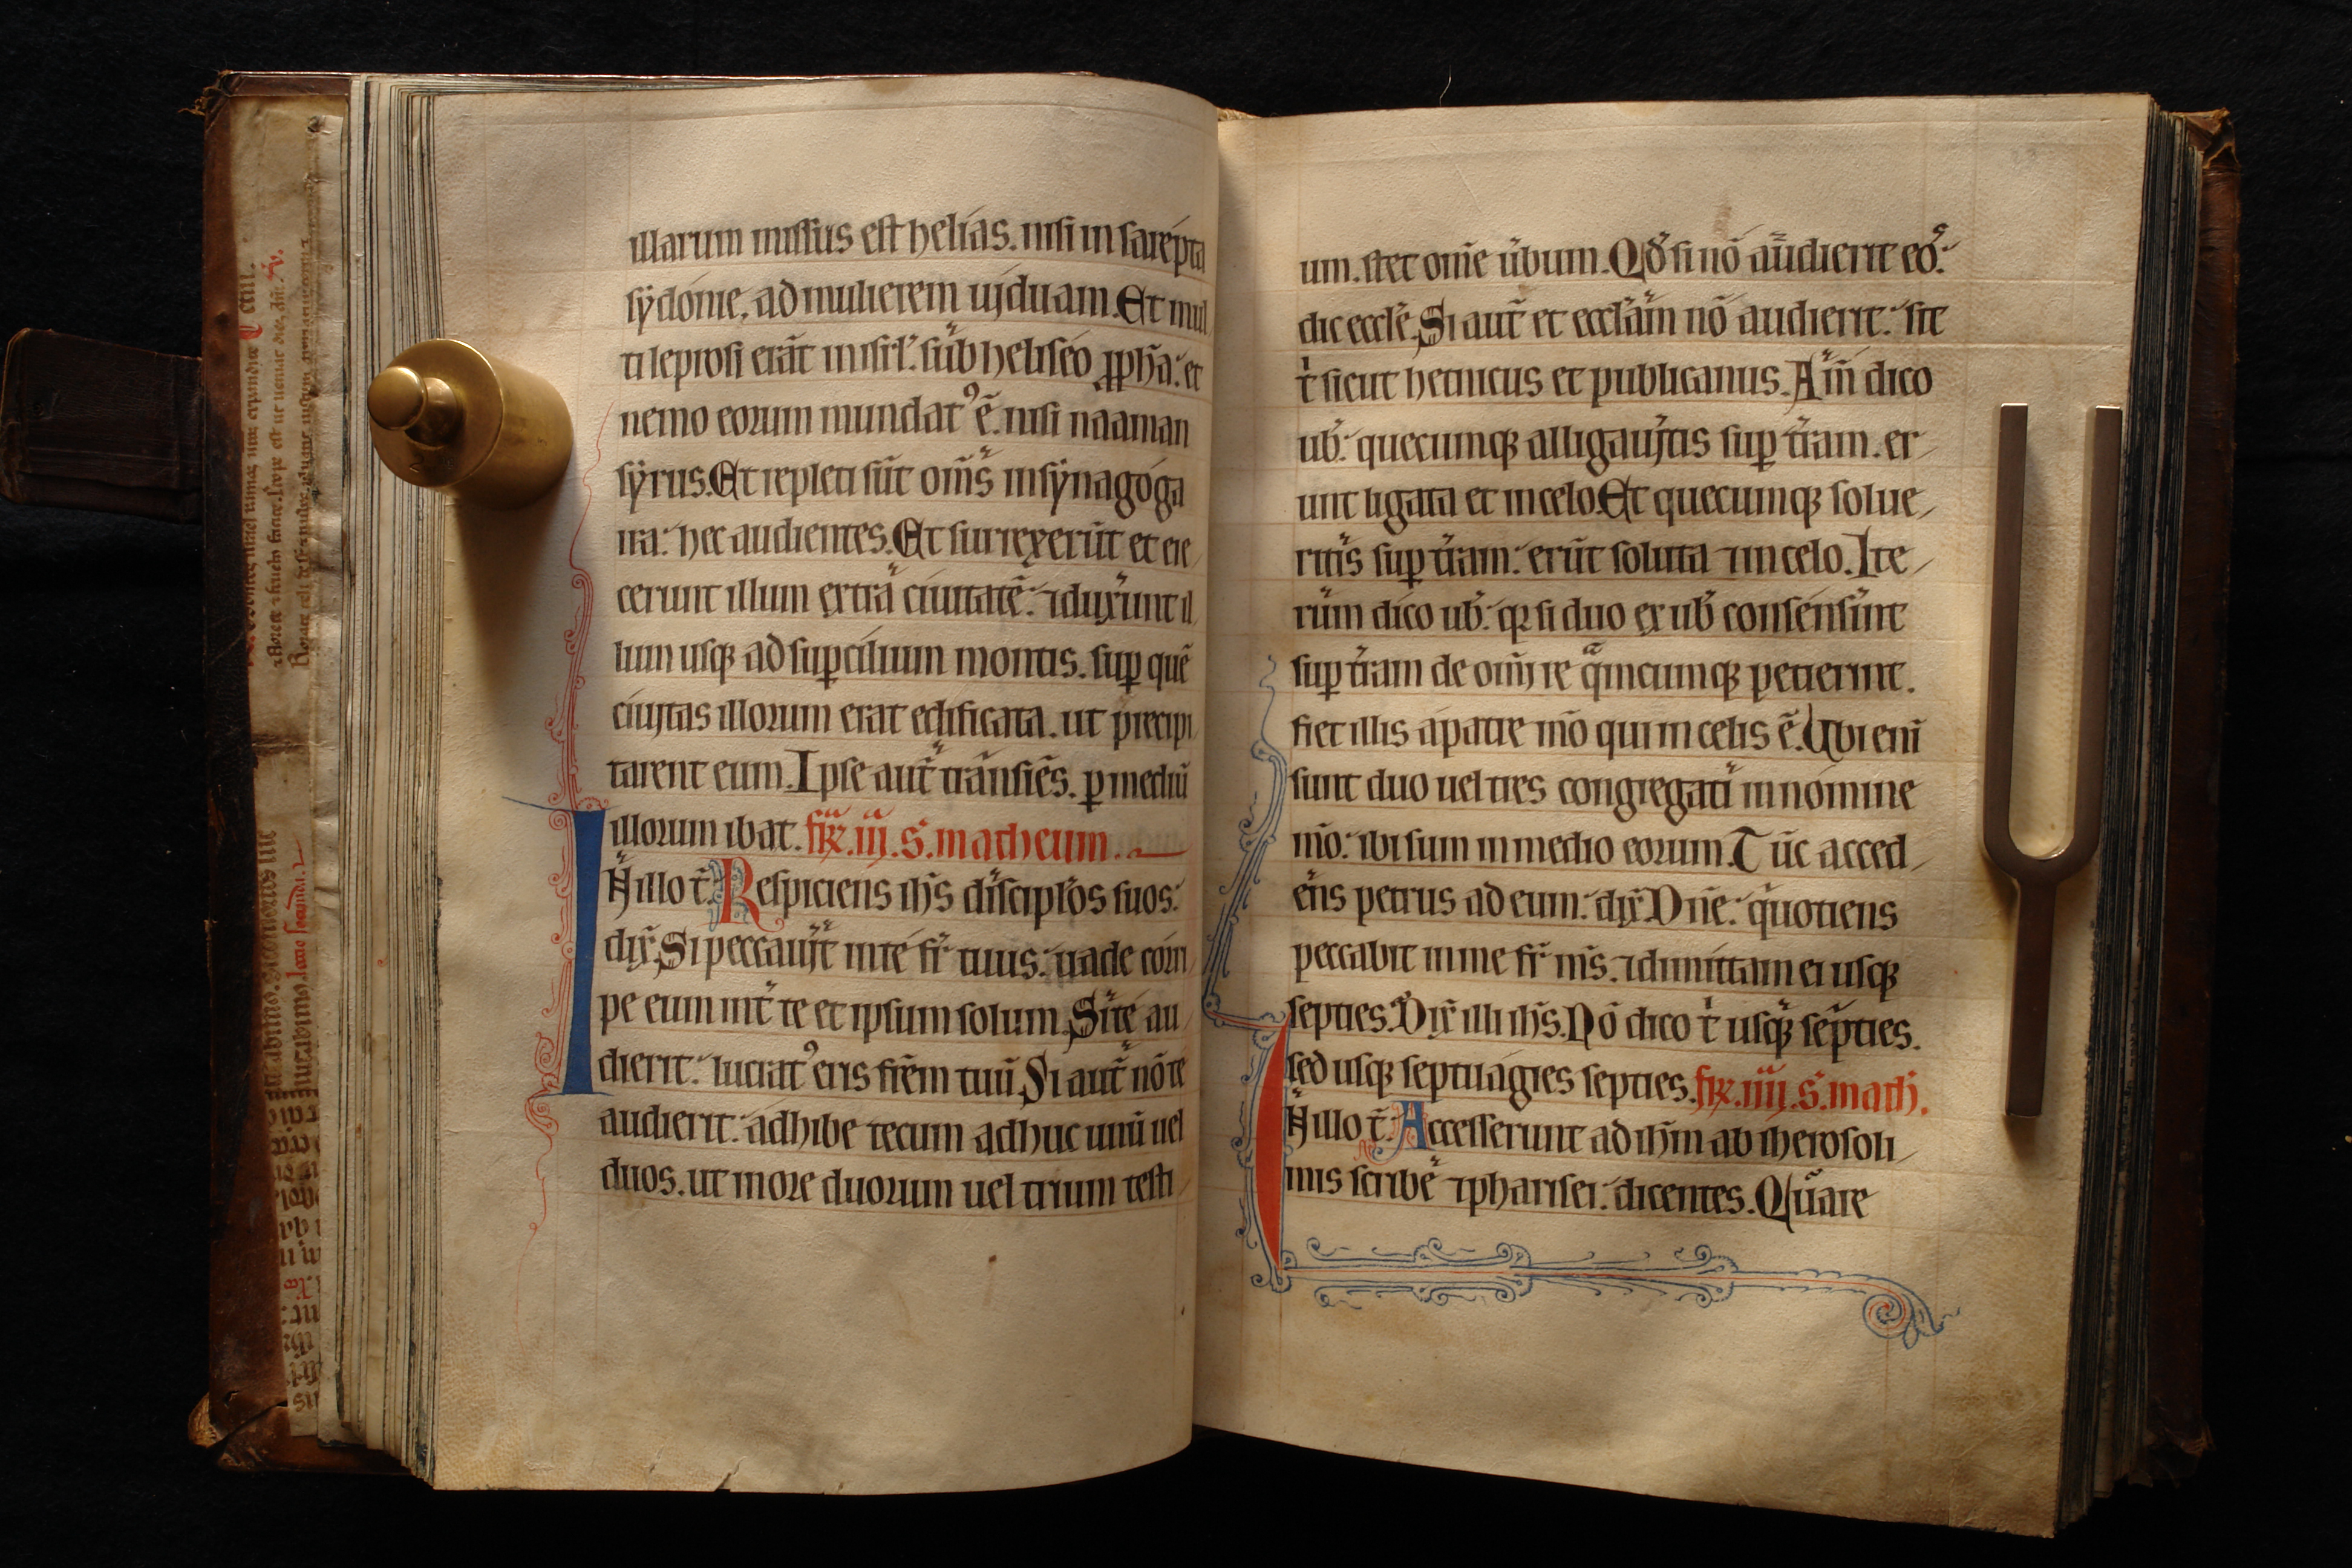 illarum missus est helias. nisi in sarepta
sydonie. ad mulierem uiduam. Et mul
ti leprosi erāt in isrl'. sub heliseo ꝓpħa: et
nemo eorum mundatꝰ ē. nisi naaman
syrus. Et repleti sūt om̄s in synagoga
ira: hec audientes. Et surrexerūt et eie
cerunt illum extra ciuitatē: ⁊ duxerunt il
lum usqꝫ ad suꝑcilium montis. suꝑ quē
ciuitas illorum erat edificata. ut precipi
tarent eum. Ipse aut̄ transiēs. ꝑ mediū
illorum ibat. fr̄. iij. S. matheum.
In illo t̄. Respiciens ih̄s discipl'os suos:
dix̄. Si peccauit in te fr̄ tuus: uade corri
pe eum int̄ te et ipsum solum. Si te au
dierit: lucratꝰ eris fr̄em tuū. Si aut̄ nō te
audierit: adhibe tecum adhuc unū uel
duos. ut in ore duorum uel trium testi
um. stet om̄e ūbum. Qd̄ si nō audierit eos:
dic eccl'e. Si aut̄ et eccl'am nō audierit: sit
t' sicut hetnicus et publicanus. Am̄ dico
uob̄: quecumqꝫ alligauitis suꝑ t̄ram. er
unt ligata et in celo. Et quecumqꝫ solue
ritis suꝑ t̄ram: erūt soluta ⁊ in celo. Ite
rum dico uob̄: qꝛ si duo ex uob̄ consenserint
suꝑ t̄ram de om̄i re quācumqꝫ petierint.
fiet illis a patre m̄o qui in celis ē. Ubi eni
sunt duo uel tres congregati in nomine
m̄o: ibi sum in medio eorum. Tūc acced
ens petrus ad eum: dix̄. Dn̄e: quotiens
peccabit in me fr̄ m̄s. ⁊ dimittam ei usqꝫ
septies. Dix̄ illi ih̄s. Nō dico t' usqꝫ septies.
sed usqꝫ septuagies septies. fr̄. iiij. S. math̄.
In illo t̄. Accesserunt ad ih̄m ab iherosoli
mis scribe ⁊ pharisei: dicentes. Quare